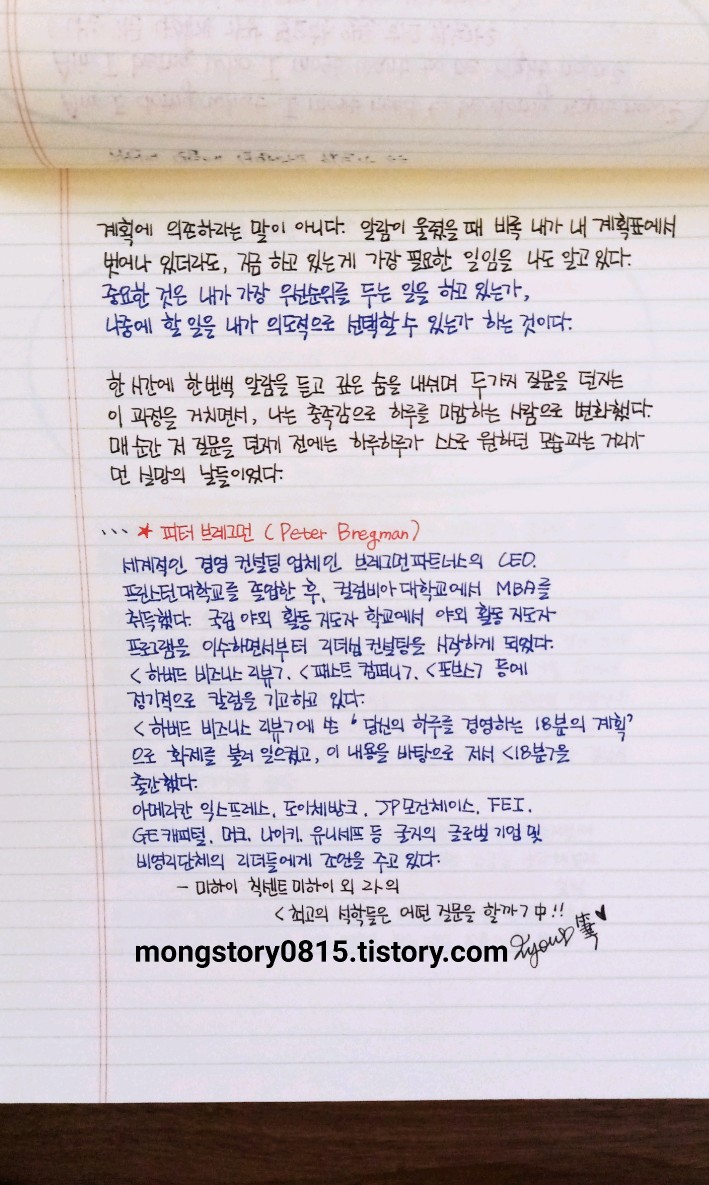 계획에 의존하라는 말이 아니다. 알람이 울렸을 때 비록 내가 내 계획표에서
벗어나 있더라도, 지금 하고 있는게 가장 필요한 일임을 나도 알고 있다.
중요한 것은 내가 가장 우선순위를 두는 일을 하고 있는가,
나중에 할 일을 내가 의도적으로 선택할 수 있는가 하는 것이다.
한 시간에 한번씩 알람을 듣고 깊은 숨을 내쉬며 두가지 질문을 던지는
이 과정을 거치면서, 나는 충족감으로 하루를 마감하는 사람으로 변화했다.
매 순간 저 질문을 던지기 전에는 하루하루가 스스로 원하던 모습과는 거리가
먼 실망의 날들이었다.
... ★ 피터 브레그먼 (Peter Bregman)
세계적인 경영 컨설팅 업체인 브레그먼파트너스의 CEO.
프린스턴대학교를 졸업한 후, 컬럼비아대학교에서 MBA를
취득했다. 국립 야외 활동 지도자 학교에서 야외 활동 지도자
프로그램을 이수하면서부터 리더십 컨설팅을 시작하게 되었다.
<하버드 비즈니스 리뷰>, <패스트 컴퍼니>, <포브스> 등에
정기적으로 칼럼을 기고하고 있다.
<하버드 비즈니스 리뷰>에 쓴 '당신의 하루를 경영하는 18분의 계획'
으로 화제를 불러 일으켰고, 이 내용을 바탕으로 저서 <18분>을
출간했다.
아메리칸 익스프레스, 도이체방크, JP모건체이스, FEI,
GE캐피털, 머크, 나이키, 유니세프 등 굴지의 글로벌 기업 및
비영리단체의 리더들에게 조언을 주고 있다.
- 미하이 칙센트미하이 외 2人의
<최고의 석학들은 어떤 질문을 할까> 中!!
mongstory0815.tistory.com